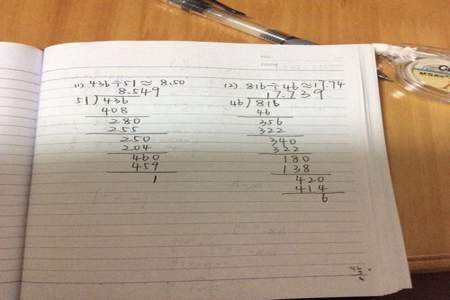 (1) 436÷51≈8.50
8.549
51)436
408
280
255
250
204
460
459
1
(2) 816÷46≈17.74
17.739
46)816
46
356
322
340
322
180
138
420
414
6